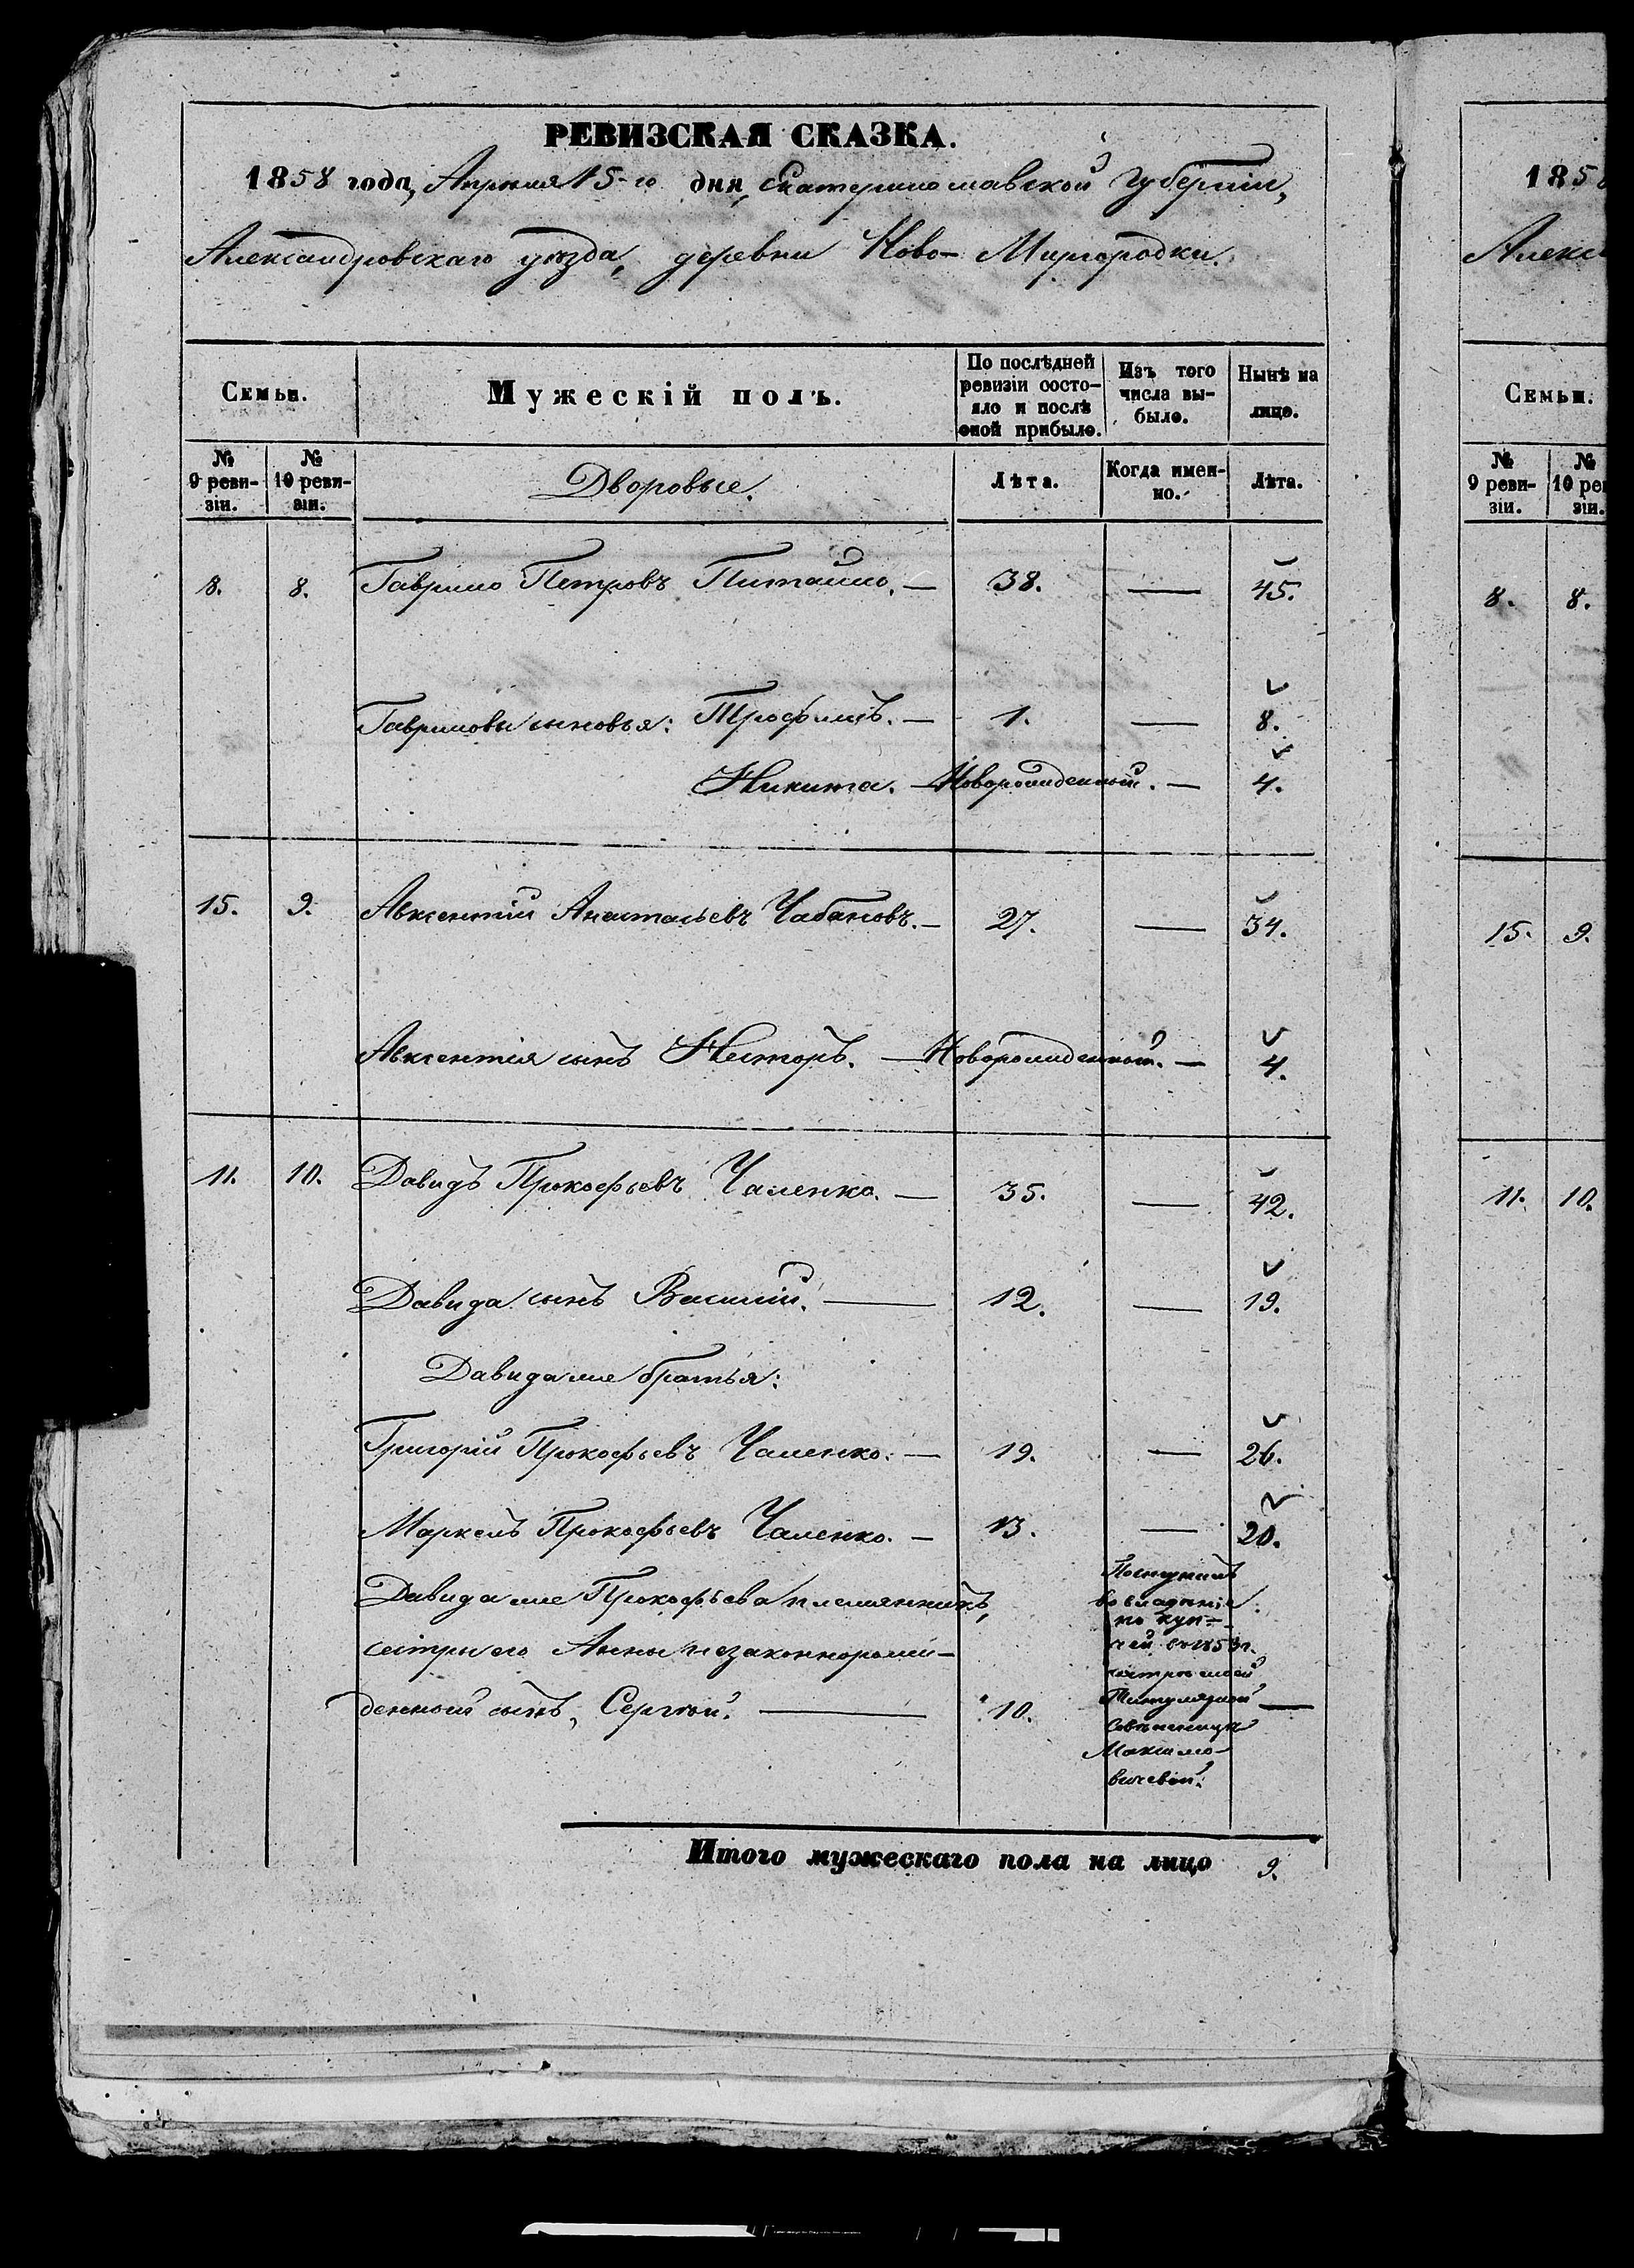 РЕВИЗСКАЯ СКАЗКА.
1858 года, Апреля 15-го дня, Екатеринославской Губерніи,
Александровскаго уѣзда, деревни Ново-Миргородки.
Семьи.
Мужескій полъ.
По послѣдней ревизіи состояло и послѣ оной прибыло.
Изъ того числа выбыло.
Нынѣ на лицо.
№ 9 ревизіи.
№ 10 ревизіи.
Дворовые.
Лѣта.
Когда именно.
Лѣта.
8. 8. Гаврило Петровъ — 38. — 45.
Гаврилови сыновья: Трофимъ. — 1. — 8.
Никита. — Новорожденный. — 4.
15. 9. Авксентій Анатольевъ Чабановъ. — 27. — 34.
Авксентія сынъ Несторъ. — Новорожденный. — 4.
11. 10. Давидъ Прокофьевъ Чаленко. — 35. — 42.
Давида сынъ Василій. — 12. — 19.
Давида же братья:
Григорій Прокофьевъ Чаленко. — 19. — 26.
Маркелъ Прокофьевъ Чаленко. — 13. — 20.
Давида же Прокофьева племянникъ,
сестры его Анны незаконнорож-
денный сынъ, Сергѣй. — 10. —
Поступилъ
во владѣніе
по куп-
чей
Титулярной
Совѣтницы
Максимо-
вичевой.
Итого мужескаго пола на лицо 9.
185
Алекс
Семьи.
№ 9 ревизіи.
№ 10 ре
зіи.
8. 8.
15. 9.
11. 10.